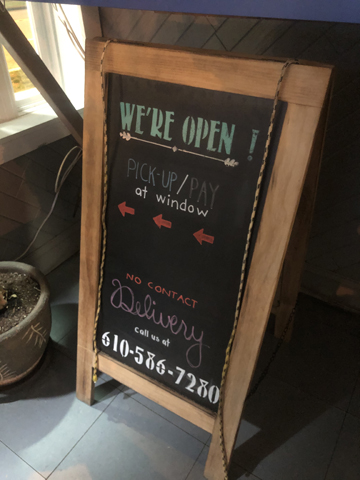 WE'RE OPEN!
PICK-UP/PAY
at window
NO CONTACT
Delivery
call us at
610-586-7280